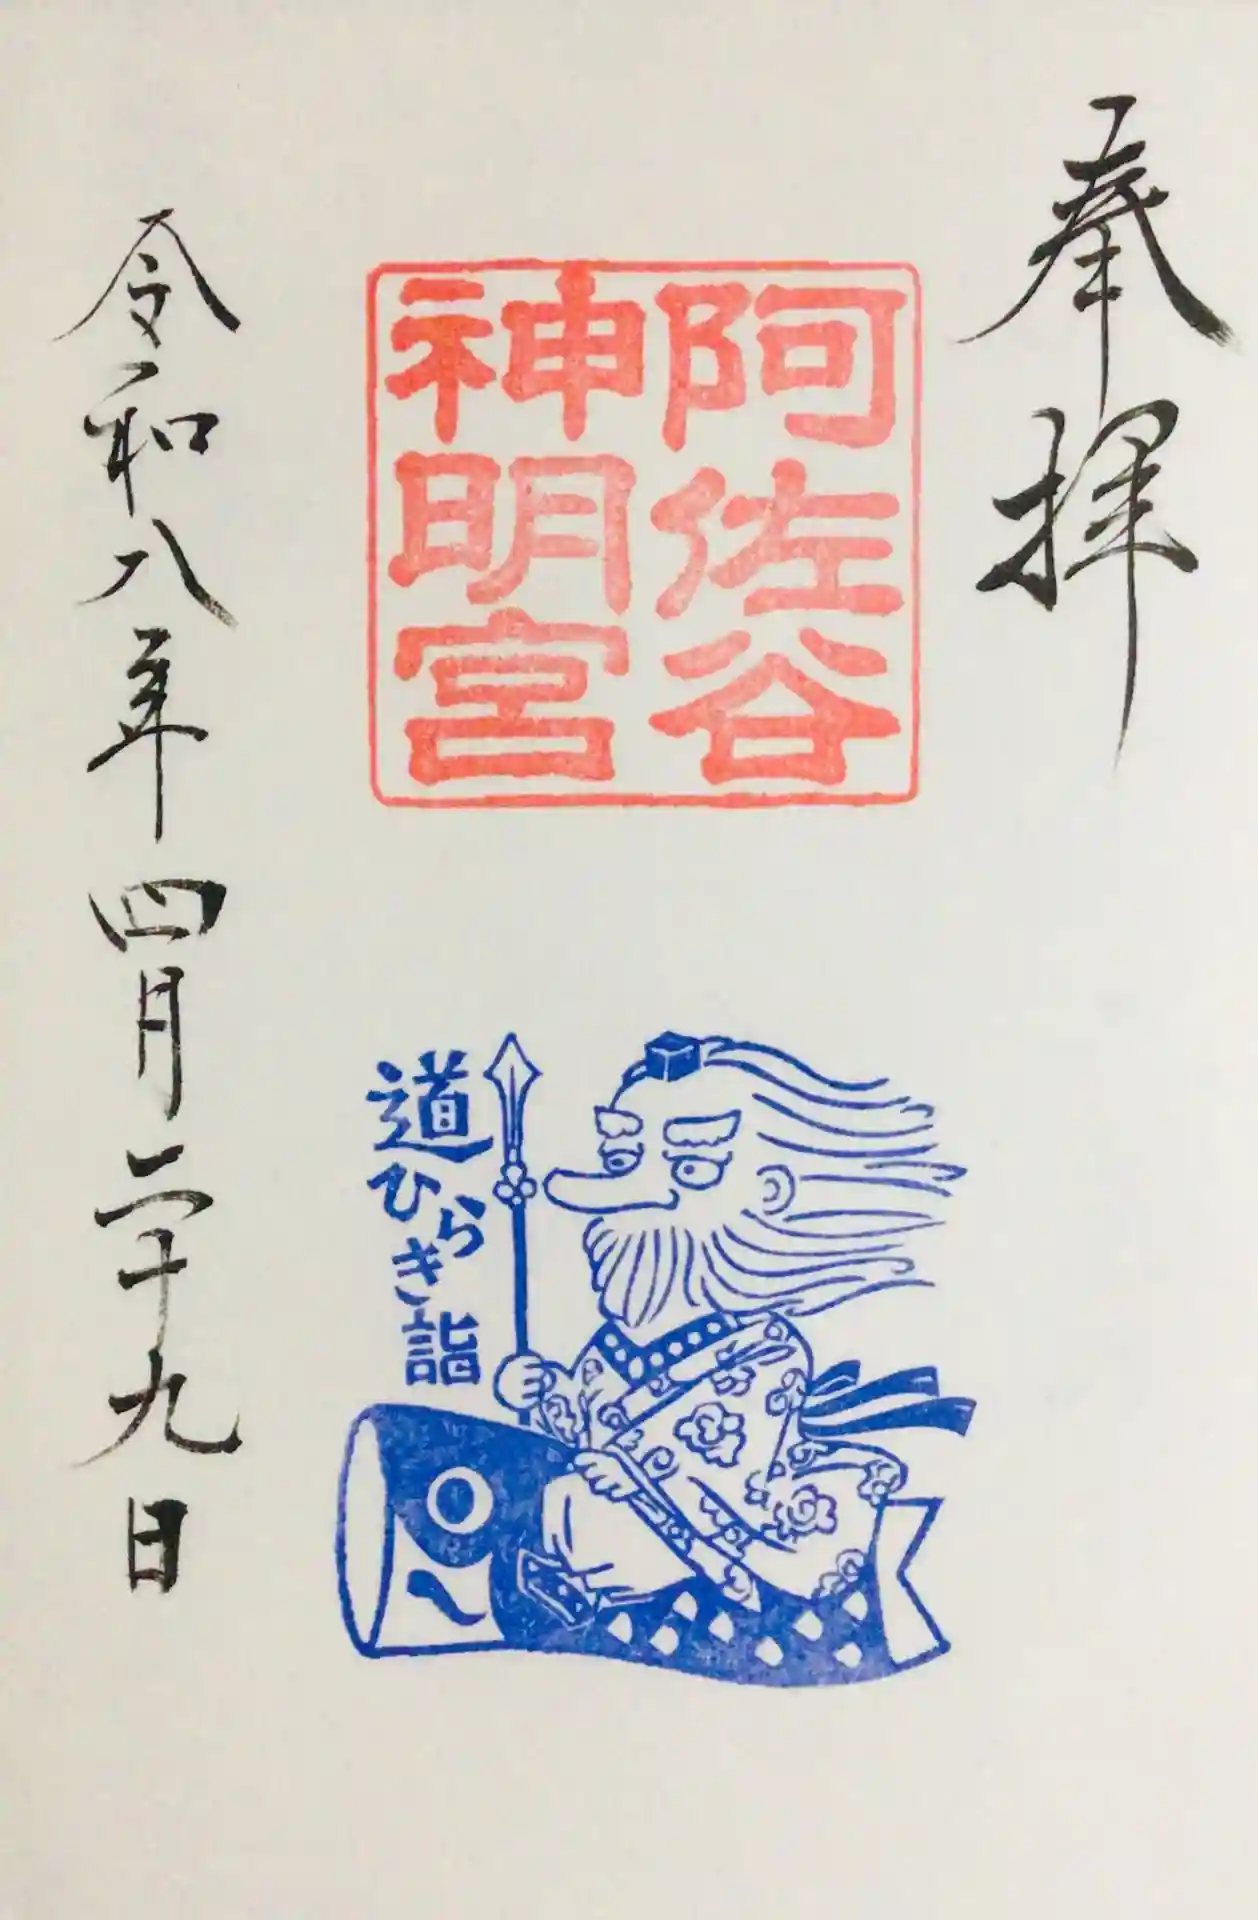 奉拝
阿佐谷
神明宮
道ひらき詣
令和八年四月二十九日